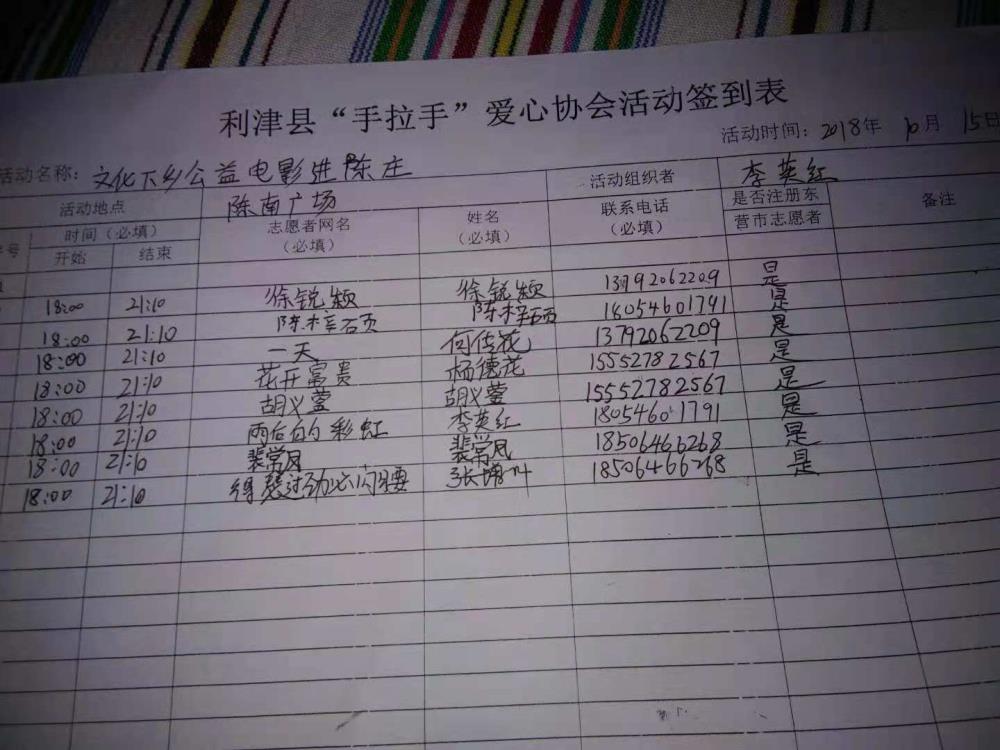 利津县“手拉手”爱心协会活动签到表
活动时间：2018年 10月 15日
活动名称：文化下乡公益电影进陈庄 活动组织者 李英红
活动地点 陈南广场 联系电话（必填） 是否注册东营市志愿者 备注
序号 时间（必填） 志愿者网名（必填） 姓名（必填）
开始 结束
18:00 21:10 徐锐颖 徐锐颖 13792062209 是
18:00 21:10 陈梓硕 陈梓硕 18054601791 是
18:00 21:10 一天 何传花 13792062209 是
18:00 21:10 花开富贵 杨德花 15552782567 是
18:00 21:10 胡义萱 胡义萱 15552782567 是
18:00 21:10 雨后的彩虹 李英红 18054601791 是
18:00 21:10 裴常凤 裴常凤 18506466268 是
18:00 21:10 得瑟过劲必闪腰 张 18506466268 是